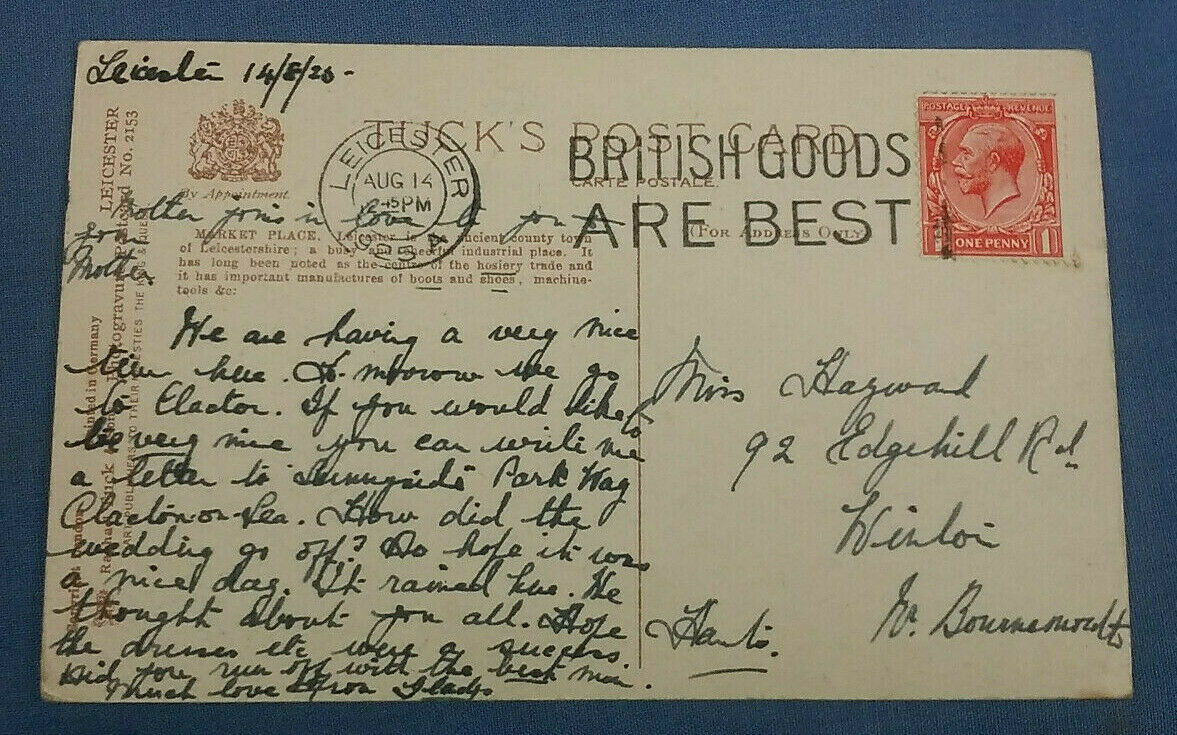 Leicester 14/8/26.
TUCK'S POST CARD
CARTE POSTALE.
By Appointment.
(FOR ADDRESS ONLY)
LEICESTER
AUG 14
5 PM
BRITISH GOODS
ARE BEST
POSTAGE REVENUE
ONE PENNY 1
Mother joins in love to you &
your
Mother
MARKET PLACE. Leicester is the ancient county town
of Leicestershire; a busy and cheerful industrial place. It
has long been noted as the centre of the hosiery trade and
it has important manufactures of boots and shoes, machine-
tools &c:
We are having a very nice
time here. To-morrow we go
to Clacton. If you would like to
be very nice you can write me
a letter to Sunnyside Park Way
Clacton-on-Sea. How did the
wedding go off? Do hope it was
a nice day. It rained here. We
thought about you all. Hope
the dresses etc were a success.
Did you run off with the best man.
Much love from Gladys
Miss Hayward
92 Edgehill Rd.
Winton
Nr. Bournemouth
Hants.
LEICESTER
No. 2153
Printed in Germany